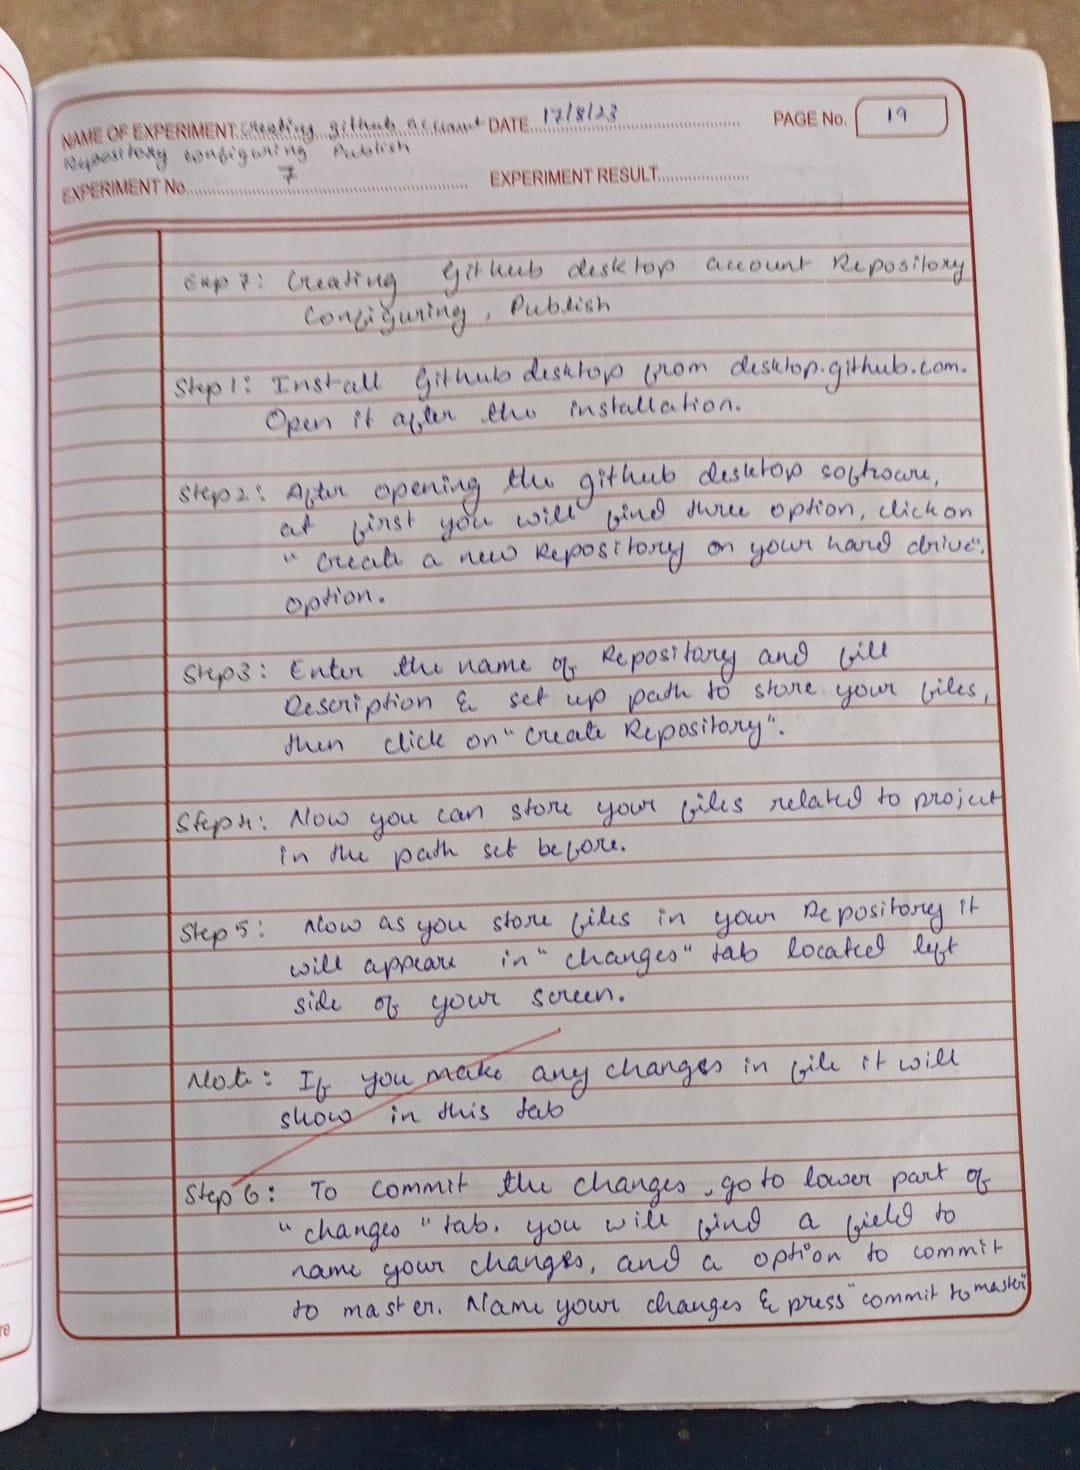 NAME OF EXPERIMENT Creating github account DATE 17/8/23 PAGE No. 19
Repository configuring Publish
EXPERIMENT No. 7 EXPERIMENT RESULT
Exp 7: Creating Github desktop account Repository
Configuring, Publish
Step 1: Install Github desktop from desktop.github.com.
Open it after the installation.
Step 2: After opening the github desktop software,
at first you will find three option, click on
" Create a new Repository on your hard drive".
option.
Step 3: Enter the name of Repository and fill
Description & set up path to store your files,
then click on "Create Repository".
Step 4: Now you can store your files related to project
in the path set before.
Step 5: Now as you store files in your Repository it
will appeare in "changes" tab located left
side of your screen.
Note: If you make any changes in file it will
show in this tab
Step 6: To commit the changes, go to lower part of
"changes" tab. you will find a field to
name your changes, and a option to commit
to master. Name your changes & press "commit to master"